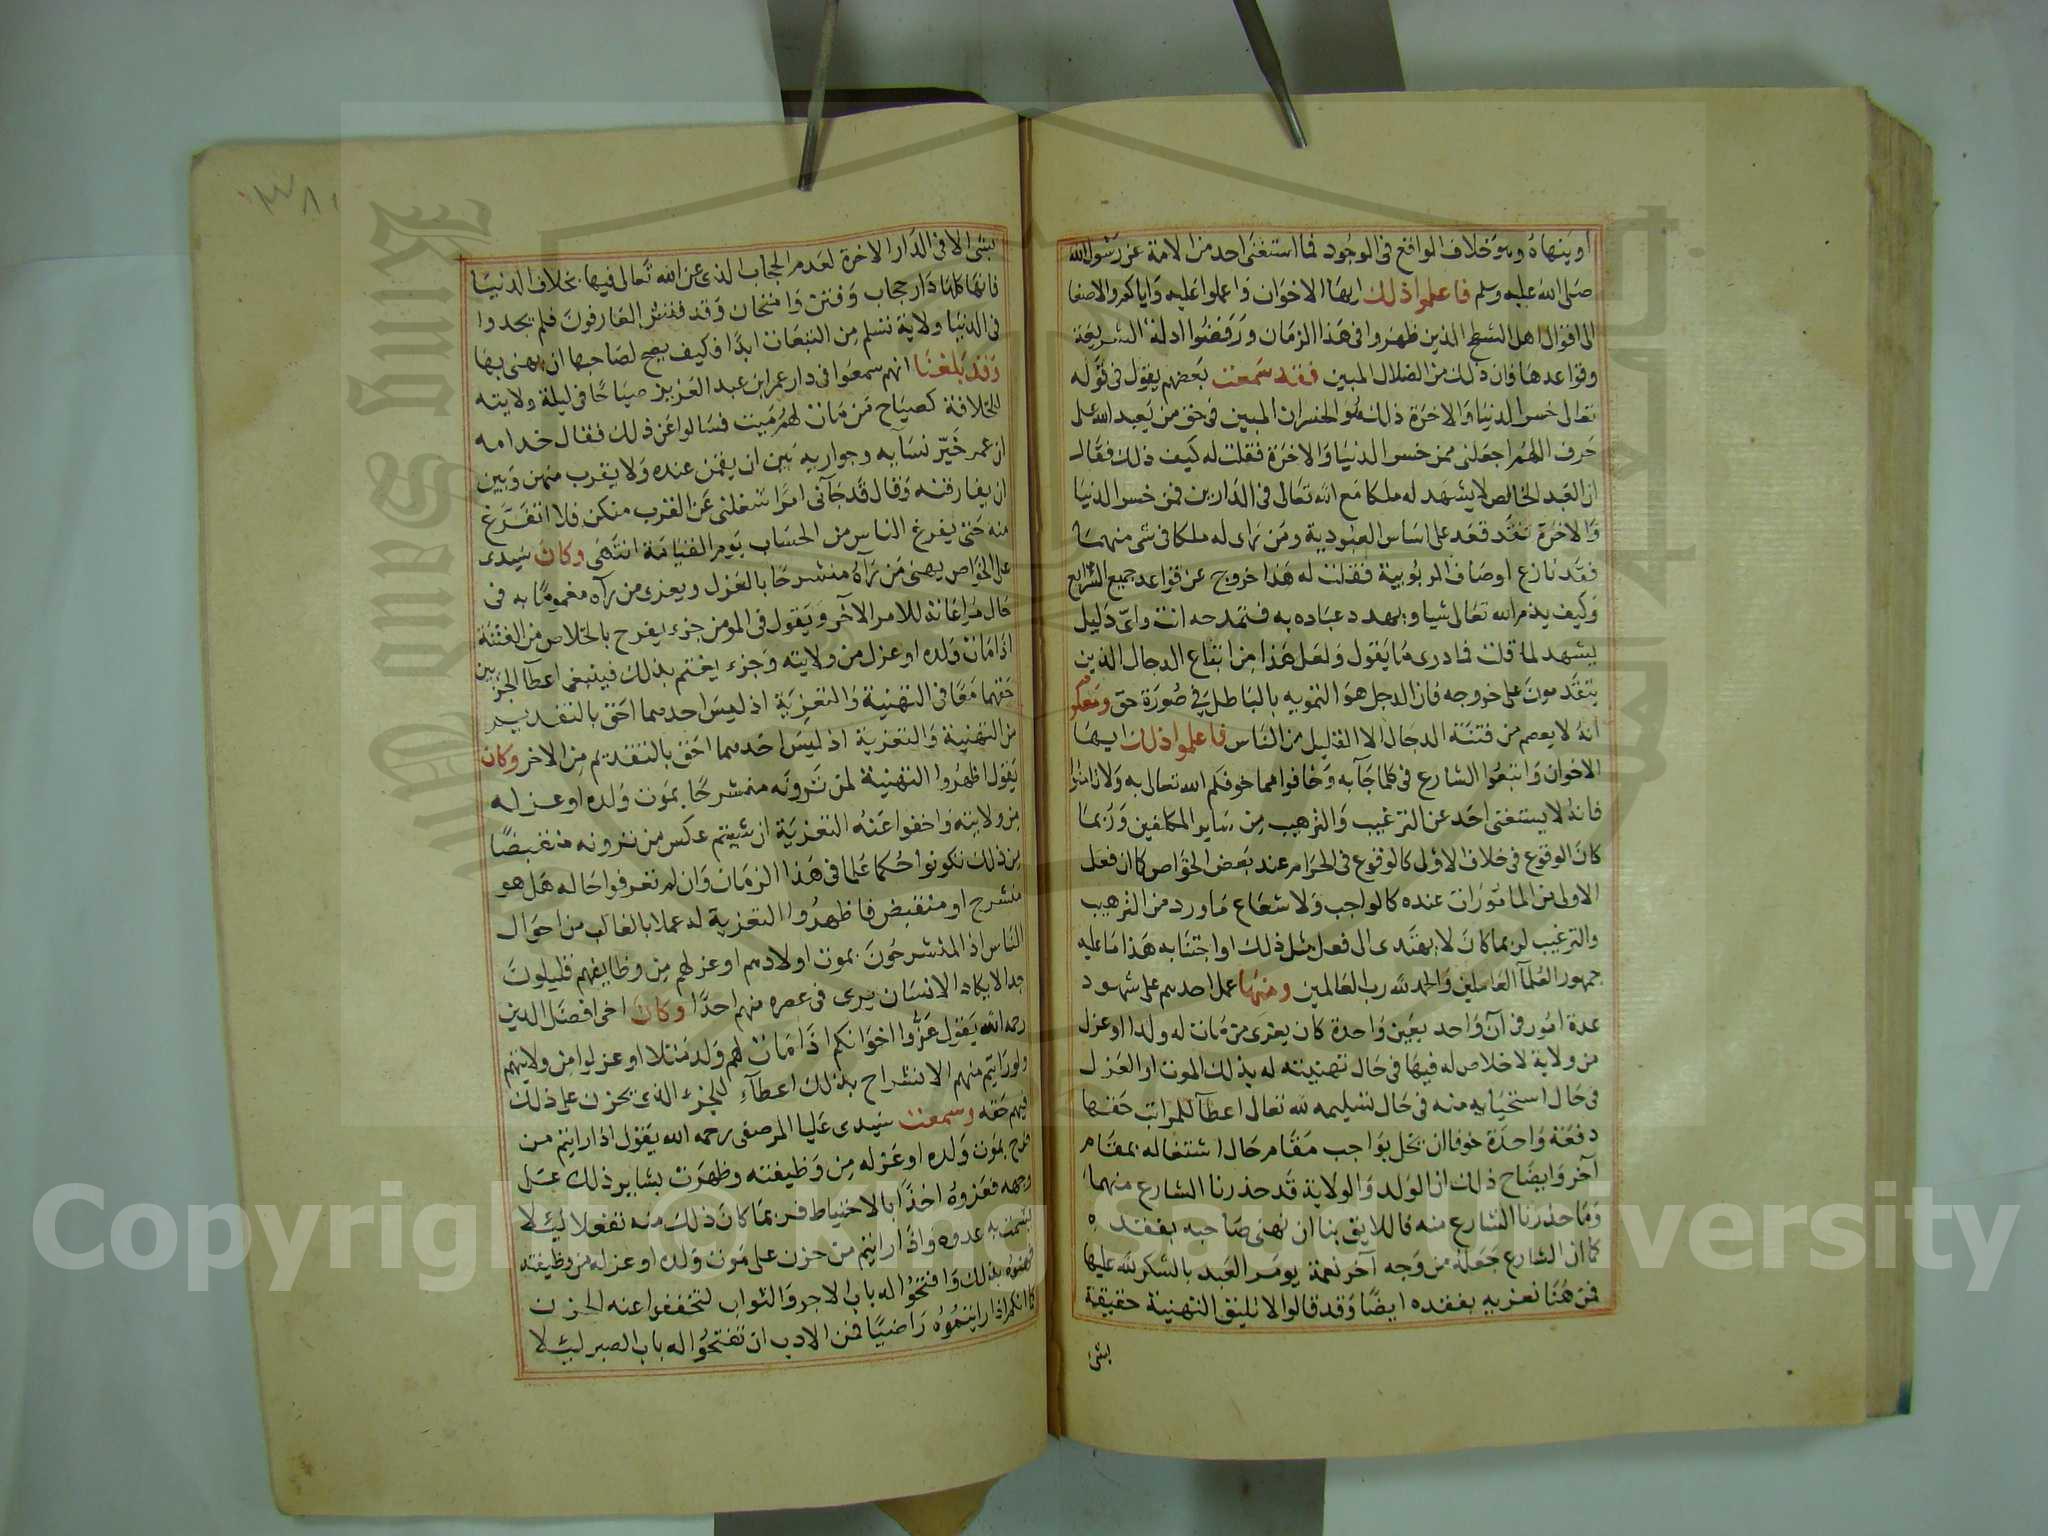 او ينهاه وهو خلاف الواقع في الوجود فما استغنى احد من الامة عن رسول الله
صلى الله عليه وسلم فاعلموا ذلك ايها الاخوان واعملوا عليه واياكم والاصغا
الى اقوال اهل الشطح الذين ظهروا في هذا الزمان ورفضوا ادلة الشريعة
وقواعدها فان ذلك من الضلال المبين فقد سمعت بعضهم يقول في قوله
تعالى خسر الدنيا والاخرة ذلك هو الخسران المبين في حق من يعبد الله على
حرف اللهم اجعلني ممن خسر الدنيا والاخرة فقلت له كيف ذلك فقال
ان العبد الخالص لا يشهد له ملكا مع الله تعالى في الدارين فمن خسر الدنيا
والاخرة فقد قعد على اساس العبودية ومن راى له ملكا في شي منهما
فقد نازع اوصاف الربوبية فقلت له هذا خروج عن قواعد جميع الشرايع
وكيف يذم الله تعالى شيا ويهدد عباده به فتمدحه انت واي دليل
يشهد لما قلت فما درى ما يقول ولعل هذا من اتباع الدجال الذين
يتقدمون على خروجه فان الدجل هو التمويه بالباطل في صورة حق ومعلوم
انه لا يعصم من فتنة الدجال الا القليل من الناس فاعلموا ذلك ايها
الاخوان واتبعوا الشارع في كلما جآ به وخافوا مما خوفكم الله تعالى به ولا تامنوا
فانه لا يستغني احد عن الترغيب والترهيب من ساير المكلفين وربما
كان الوقوع في خلاف الاولى كالوقوع في الحرام عند بعض الخواص كما ان فعل
الاولى من المامورات عنده كالواجب ولا شعاع ما ورد من الترهيب
والترغيب لربما كان لا يهتدى الى فعل مثل ذلك او اجتنابه هذا ما عليه
جمهور العلمآ العاملين والحمد لله رب العالمين ومنها عمل احدهم على شهود
عدة امور في آن واحد بعين واحدة كان يعزى من مات له ولد او عزل
من ولاية لا خلاص له فيها في حال تهنيته له بذلك الموت او العزل
في حال استحيايه منه في حال تسليمه لله تعالى اعطآ للمراتب حقها
دفعة واحدة خوفا ان يخل بواجب مقام حال اشتغاله بمقام
آخر وايضاح ذلك ان الولد والولاية قد حذرنا الشارع منهما
وما حذرنا الشارع منه فاللايق بنا ان نهني صاحبه بفقده
كما ان الشارع جعله من وجه آخر نعمة يومر العبد بالشكر لله عليها
فمن هنا نعزيه بفقده ايضا وقد قالوا لا تليق التهنية حقيقة
بشي
بشي الا في الدار الاخرة لعدم الحجاب الذي عن الله تعالى فيها بخلاف الدنيا
فانها كلها دار حجاب وفتن وامتحان وقد فتش العارفون فلم يجدوا
في الدنيا ولاية تسلم من التبعات ابدا فكيف يصح لصاحبها ان يهنى بها
وقد بلغنا انهم سمعوا في دار عمر ابن عبد العزيز صياحا في ليلة ولايته
للخلافة كصياح من مات لهم ميت فسالوا عن ذلك فقال خدامه
ان عمر خير نسآيه وجواريه بين ان يقمن عنده ولا يقرب منهن وبين
ان يفارقنه وقال قد جآني امر شغلني عن القرب منكن فلا اتفرغ
منه حتى يفرغ الناس من الحساب يوم القيامة انتهى وكان سيدى
على الخواص يهنى من رآه منشرحا بالعزل ويعزى من رآه مغموما به في
حال مراعاته للامر الآخر ويقول في المومن جزء يفرح بالخلاص من الفتنة
اذا مات ولده او عزل من ولايته وجزء يغتم بذلك فينبغي اعطآ الجزءين
حقهما معا في التهنية والتعزية اذ ليس احدهما احق بالتقديم
من التهنية والتعزية اذ ليس احدهما احق بالتقديم من الاخر وكان
يقول اظهروا التهنية لمن ترونه منشرحا بموت ولده او عزله
من ولايته واخفوا عنه التعزية ان شيتم عكس من ترونه منقبضا
من ذلك تكونوا حكما علما في هذا الزمان وان لم تعرفوا حاله هل هو
منشرح او منقبض فاظهروا التعزية له عملا بالغالب من احوال
الناس اذ المنشرحون بموت اولادهم او عزلهم من وظايفهم قليلون
جدا لا يكاد الانسان يرى في عصره منهم احدا وكان اخي افضل الدين
رحمه الله يقول عزوا اخوانكم اذا مات لهم ولد مثلا او عزلوا من ولايتهم
ولو رايتم منهم الانشراح بذلك اعطآء للجزء الذي يحزن على ذلك
فيهم حقه وسمعت سيدى عليا المرصفي رحمه الله يقول اذا رايتم من
فرح بموت ولده او عزله من وظيفته وظهرت بشاير ذلك على
وجهه فعزوه اخذا بالاحتياط فربما كان ذلك منه تفعلا ليلا
يشمت به عدوه واذا رايتم من حزن على موت ولده او عزله من وظيفته
فهنوه بذلك وافتحوا له باب الاجر والثواب لتخففوا عنه الحزن
كما انكم اذا رايتموه راضيا فمن الادب ان تفتحوا له باب الصبر ليلا
King Saud University
Copyright © King Saud University